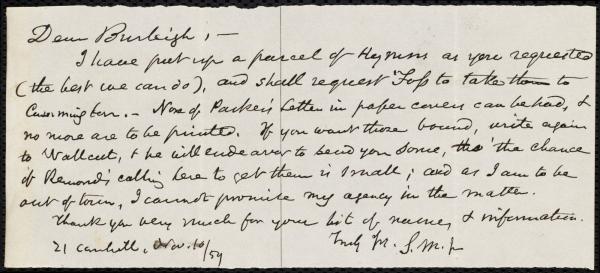 Dear Burleigh, –
I have put up a parcel of Hymns as you requested
(the best we can do), and shall request Foss to take them to
Cummington. – None of Parker's Letter in paper covers can be had, &
no more are to be printed. If you want those bound, write again
to Wallcut, & he will endeavor to send you some, tho' the chance
of Remond's calling here to get them is small; and as I am to be
out of town, I cannot promise my agency in the matter.
Thank you very much for your list of names, & information.
21 Cornhill, Nov. 10/59 Truly Yr. S. M. Jr